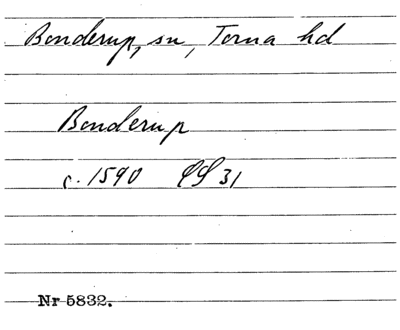 Bonderup, sn, Torna hd
Bonderup
c. 1590 LL 31
Nr 5832.